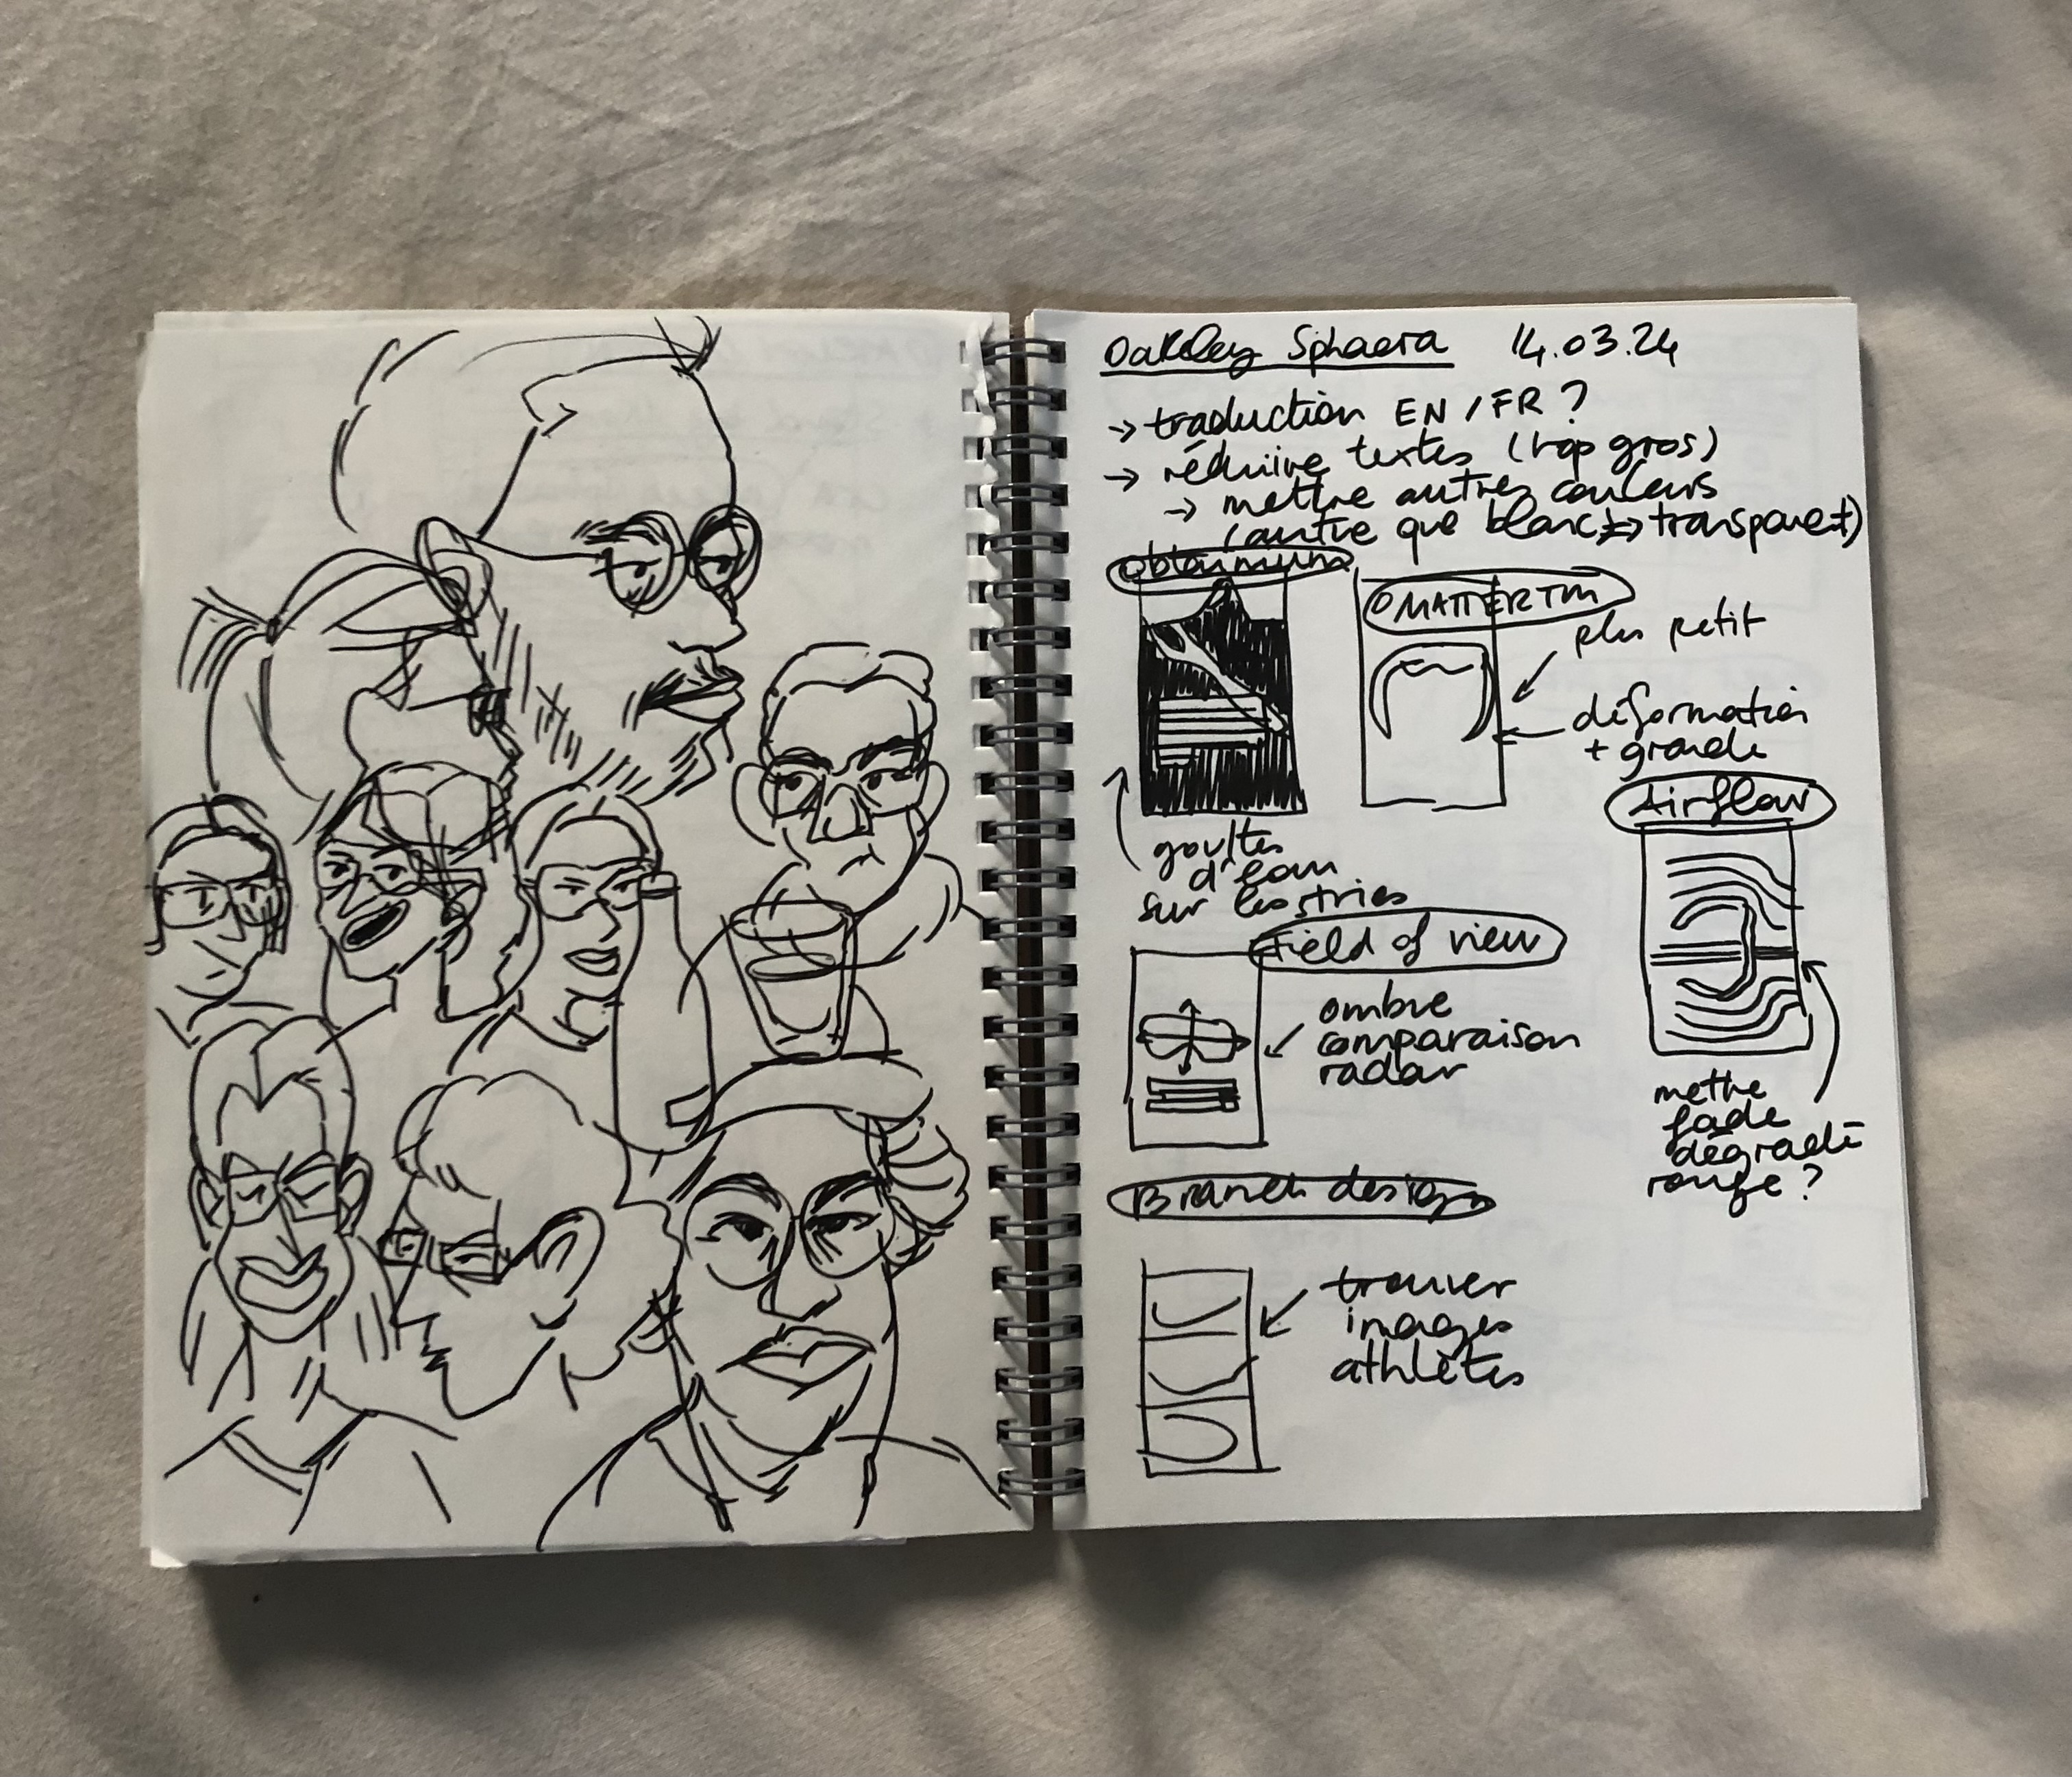 Oakley Sphaera 14.03.24
→ traduction EN / FR ?
→ réduire textes (trop gros)
→ mettre autres couleurs
(autre que blanc → transparent)
OMATTER TM
plus petit
déformation
+ grande
Airflow
gouttes
d'eau
sur les stries
Field of view
ombre
comparaison
radar
mettre
fade
dégradé
rouge ?
Branch design
trouver
images
athlètes